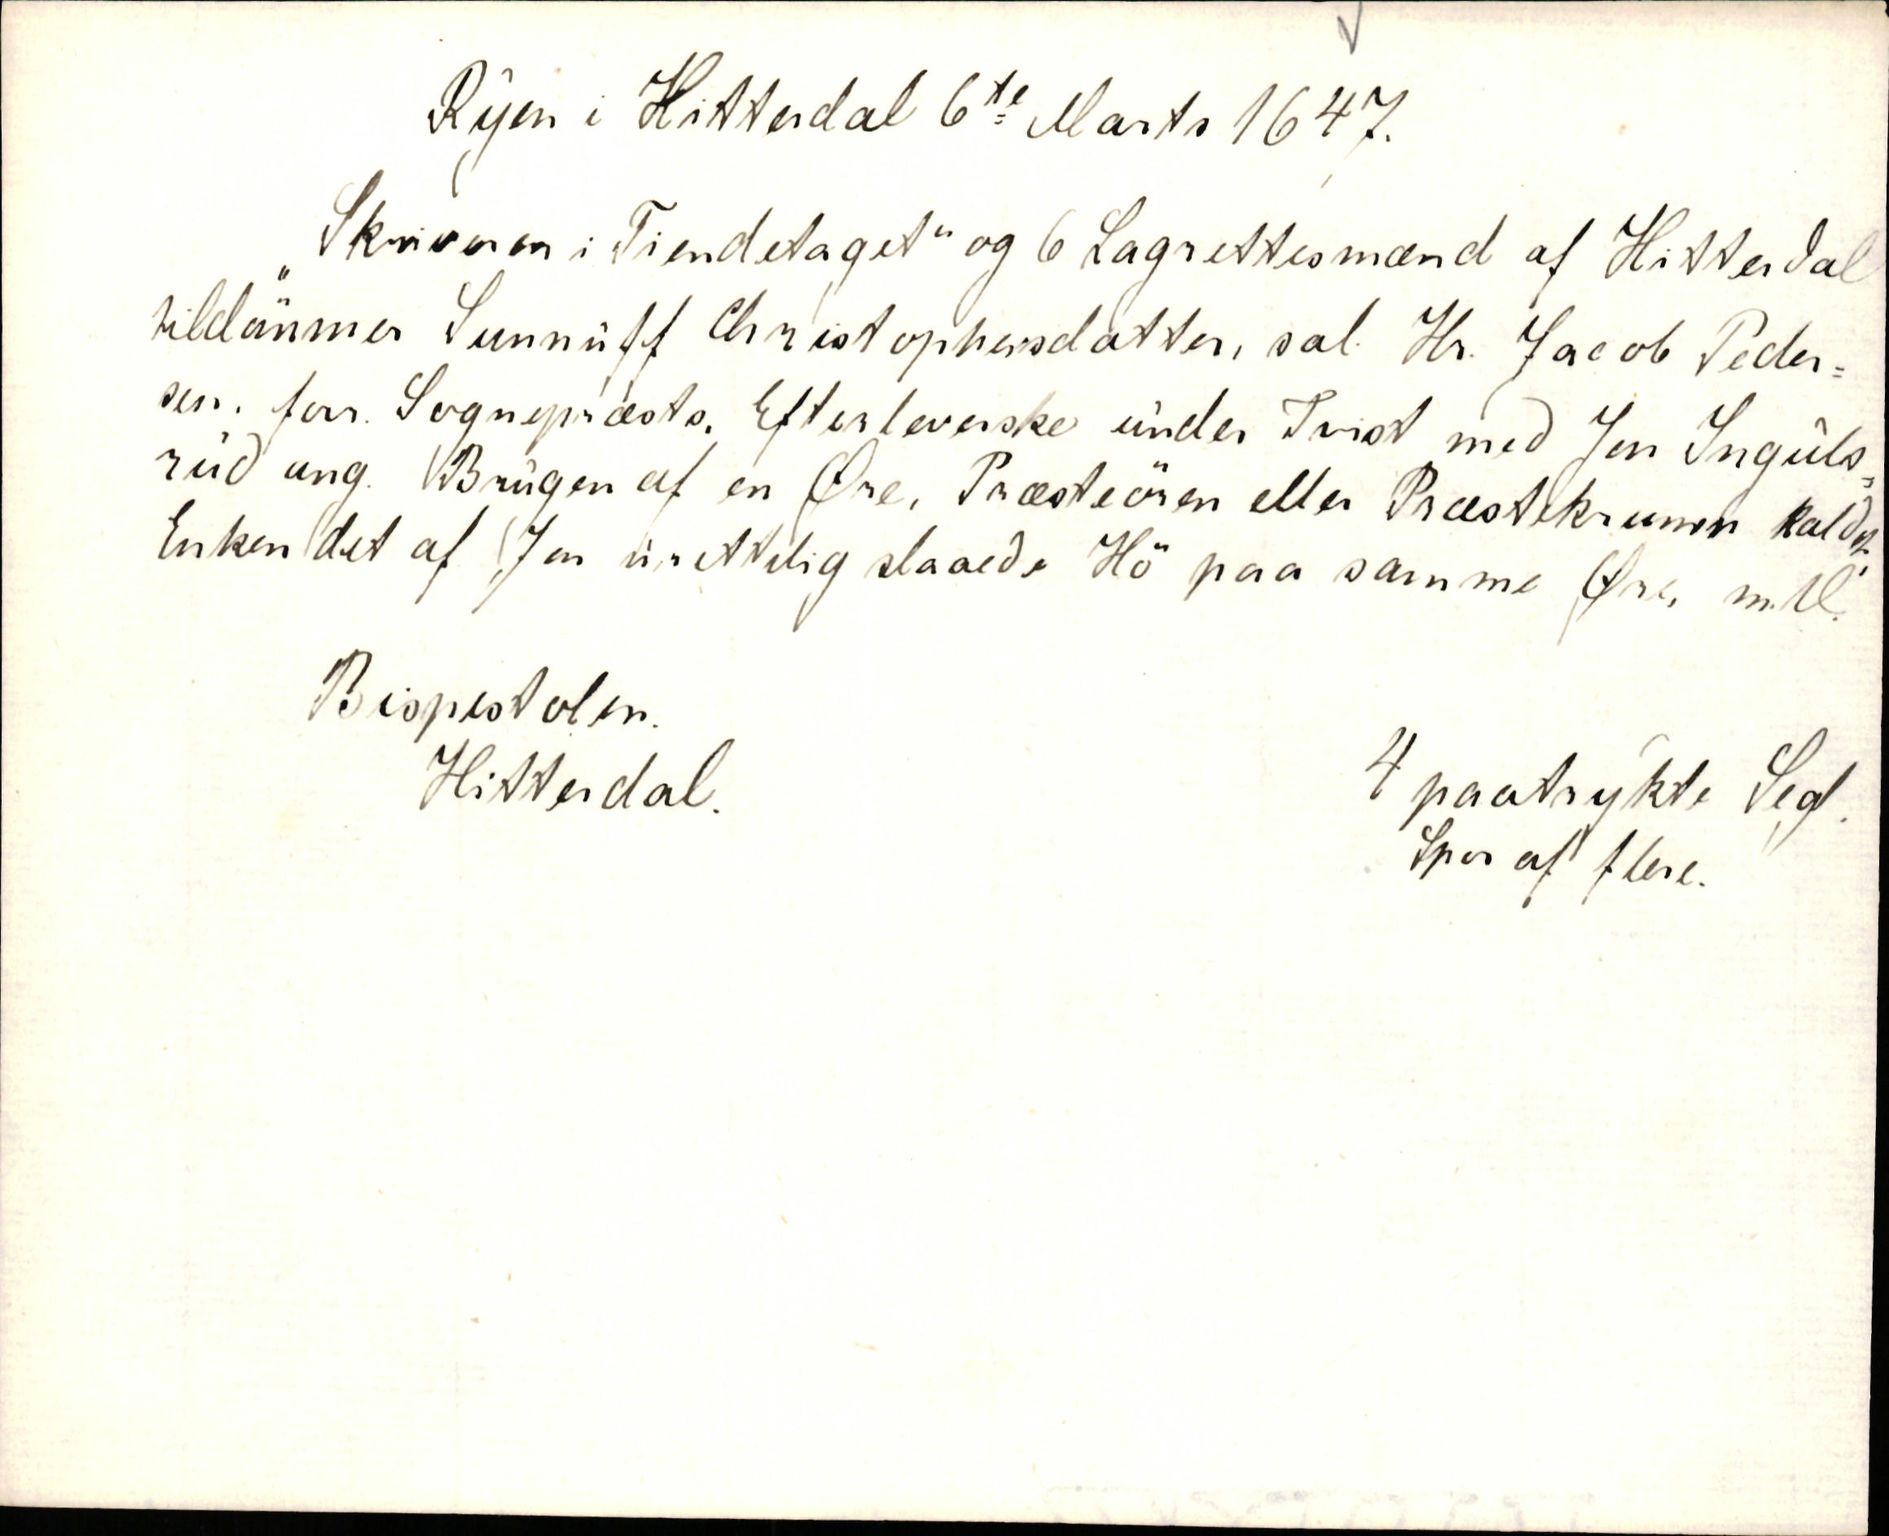 Ryen i Hitterdal 6te Marts 1647.
„Skriveren i Tiendelaget“ og 6 Lagrettesmænd af Hitterdal
tildömmer Sunnüff Christophersdatter, sal. Hr. Jacob Peder=
sen, forr. Sognepræsts, Efterleverske under Tvist med Jon Inguls=
rud ang. Brugen af en Øre, Præsteören eller Præstekrunen kaldet,
Enken det af Jon urettelig slaaede Hö paa samme Øre, m. V.
Bispestolen.
Hitterdal.
4 paatrykte Segl.
Spor af flere.